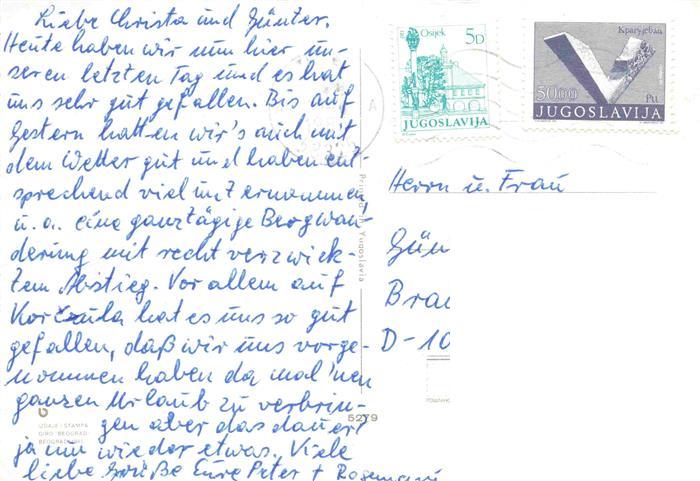 Liebe Christa und Günter,
Heute haben wir nun hier un-
seren letzten Tag und es hat
uns sehr gut gefallen. Bis auf
Gestern hatten wir's auch mit
dem Wetter gut und haben ent-
sprechend viel unternommen,
u.a. eine ganztägige Bergwan-
derung mit recht verzwick-
tem Abstieg. Vor allem auf
Korčula hat es uns so gut
gefallen, daß wir uns vorge-
nommen haben da mal 'nen
ganzen Urlaub zu verbrin-
gen aber das dauert
ja nun wieder etwas. Viele
liebe Grüße Eure Peter +
IZDAJE I STAMPA
GIRO "BEOGRAD"
BEOGRAD
5279
Printed in Yugoslavia
Osijek
5D
JUGOSLAVIJA
Крагујевац
5000
JUGOSLAVIJA
A
Herrn u. Frau
Gün
Bra
D-10